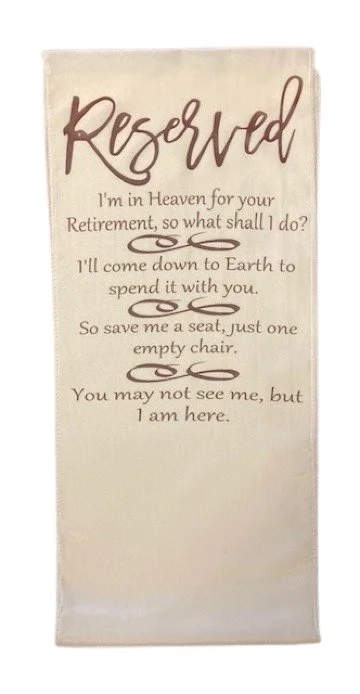 Reserved
I'm in Heaven for your
Retirement, so what shall I do?
I'll come down to Earth to
spend it with you.
So save me a seat, just one
empty chair.
You may not see me, but
I am here.